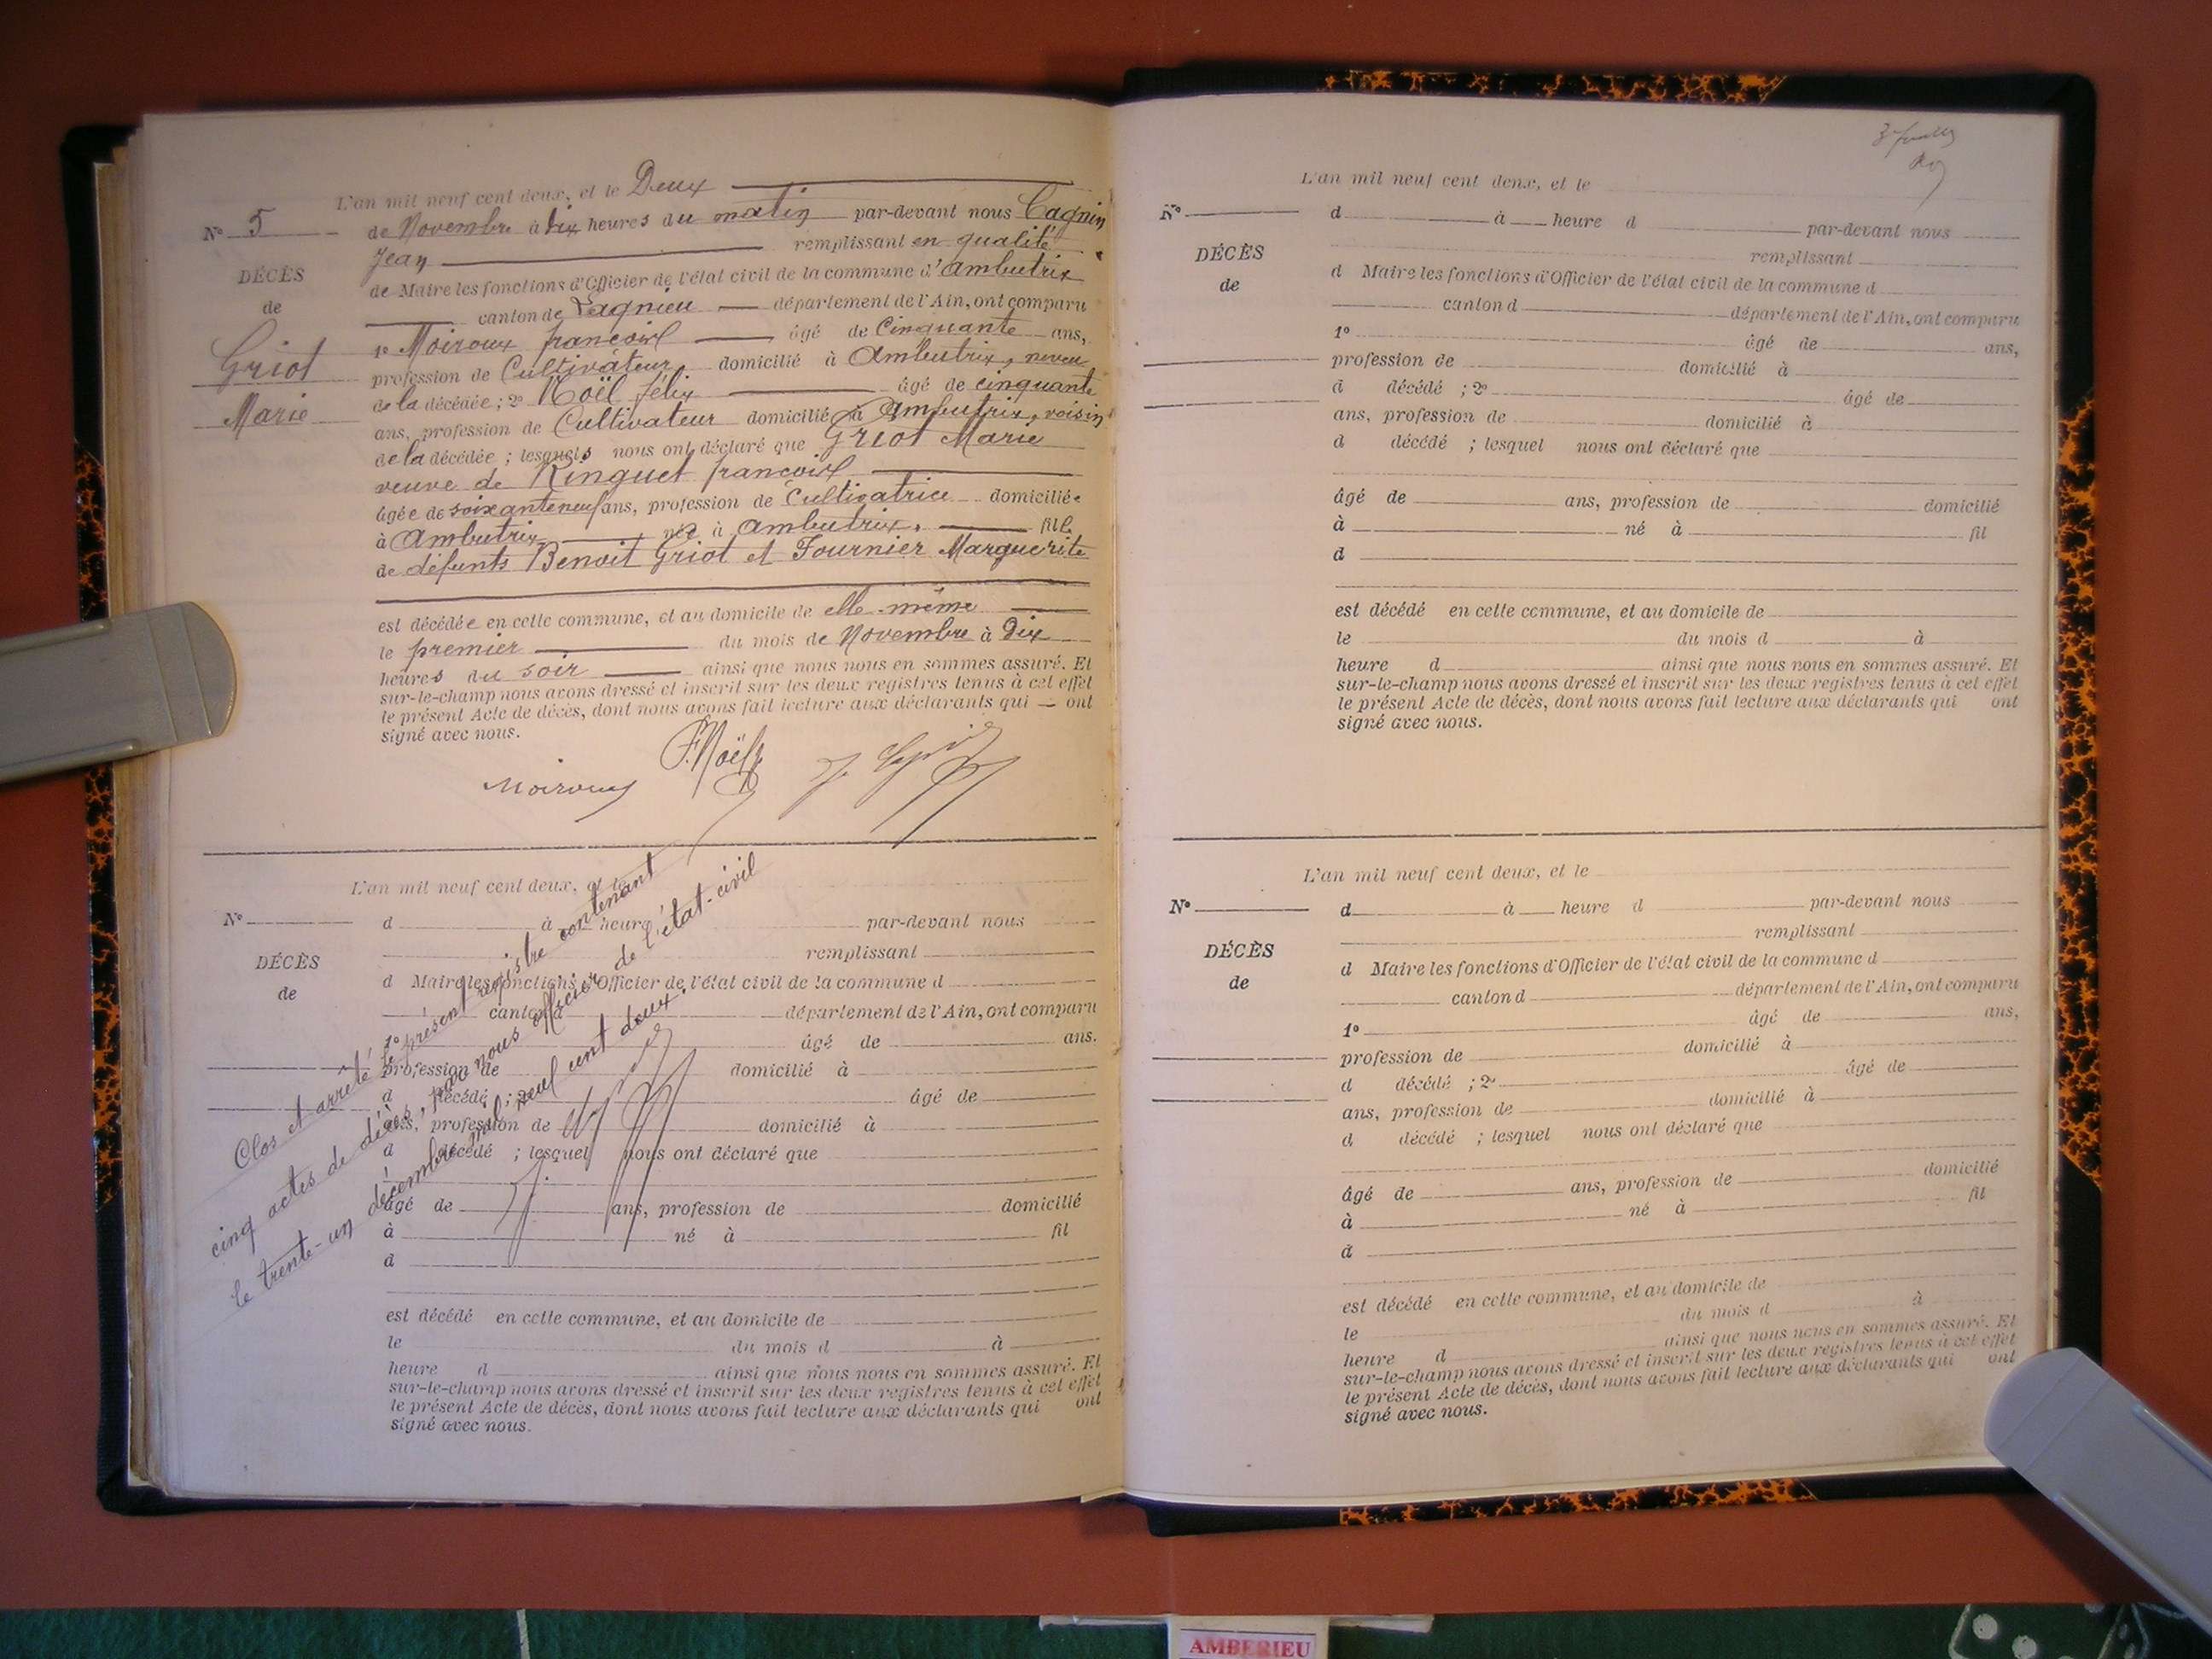 L'an mil neuf cent deux, et le Deux
N° 5
de Novembre à dix heures du matin par-devant nous Cagnin
Jean remplissant en qualité
DÉCÈS
de Maire les fonctions d'Officier de l'état civil de la commune d'Ambutrix
de
canton de Lagnieu département de l'Ain, ont comparu
1° Moiroux françois âgé de Cinquante ans,
Griot
profession de Cultivateur domicilié à Ambutrix, neveu
de la décédée ; 2° Noël félix âgé de cinquante
Marie
ans, profession de Cultivateur domicilié à Ambutrix, voisin
de la décédée ; lesquels nous ont déclaré que Griot Marie
veuve de Ringuet françois
âgée de soixante neuf ans, profession de Cultivatrice domiciliée
à Ambutrix née à Ambutrix. fille
de défunts Benoit Griot et Fournier Marguerite
est décédée en cette commune, et au domicile de elle-même
le premier du mois de Novembre à Dix
heures du soir ainsi que nous nous en sommes assuré. Et
sur-le-champ nous avons dressé et inscrit sur les deux registres tenus à cet effet
le présent Acte de décès, dont nous avons fait lecture aux déclarants qui ont
signé avec nous.
Moiroux F. Noël
L'an mil neuf cent deux, et le
N°
d à heure par-devant nous
remplissant
DÉCÈS
d Maire les fonctions d'Officier de l'état civil de la commune d
de
canton d département de l'Ain, ont comparu
1° âgé de ans.
profession de domicilié à
d décédé ; 2° âgé de
ans, profession de domicilié à
d décédé ; lesquel nous ont déclaré que
âgé de ans, profession de domicilié
à né à fil
d
est décédé en cette commune, et au domicile de
le du mois d à
heure d ainsi que nous nous en sommes assuré. Et
sur-le-champ nous avons dressé et inscrit sur les deux registres tenus à cet effet
le présent Acte de décès, dont nous avons fait lecture aux déclarants qui ont
signé avec nous.
Clos et arrêté le présent registre contenant
cinq actes de décès, par nous officier de l'état-civil
le trente-un décembre mil neuf cent deux.
L'an mil neuf cent deux, et le
N°
d à heure d par-devant nous
remplissant
DÉCÈS
d Maire les fonctions d'Officier de l'état civil de la commune d
de
canton d département de l'Ain, ont comparu
1° âgé de ans,
profession de domicilié à
d décédé ; 2° âgé de
ans, profession de domicilié à
d décédé ; lesquel nous ont déclaré que
âgé de ans, profession de domicilié
à né à fil
d
est décédé en cette commune, et au domicile de
le du mois d à
heure d ainsi que nous nous en sommes assuré. Et
sur-le-champ nous avons dressé et inscrit sur les deux registres tenus à cet effet
le présent Acte de décès, dont nous avons fait lecture aux déclarants qui ont
signé avec nous.
L'an mil neuf cent deux, et le
N°
d à heure d par-devant nous
remplissant
DÉCÈS
d Maire les fonctions d'Officier de l'état civil de la commune d
de
canton d département de l'Ain, ont comparu
1° âgé de ans,
profession de domicilié à
d décédé ; 2° âgé de
ans, profession de domicilié à
d décédé ; lesquel nous ont déclaré que
âgé de ans, profession de domicilié
à né à fil
d
est décédé en cette commune, et au domicile de
le du mois d à
heure d ainsi que nous nous en sommes assuré. Et
sur-le-champ nous avons dressé et inscrit sur les deux registres tenus à cet effet
le présent Acte de décès, dont nous avons fait lecture aux déclarants qui ont
signé avec nous.
AMBERIEU